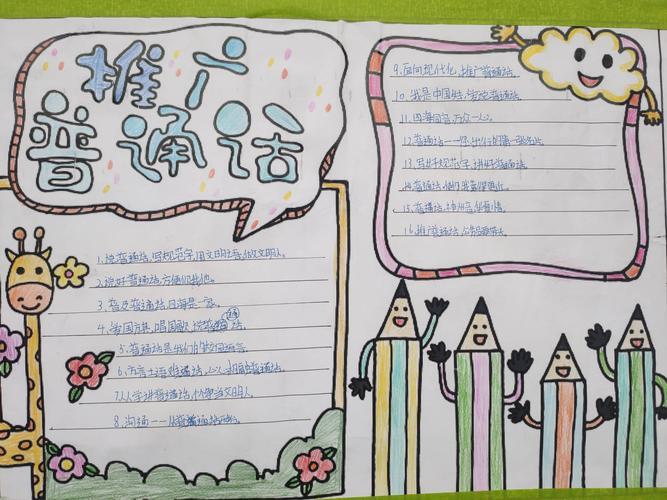 推广
普通话
1.说普通话,写规范字,用文明语,做文明人。
2.说好普通话,方便你我他。
3.普及普通话,四海是一家。
4.爱国旗,唱国歌,说普通话。
5.普通话是我们的校园语言。
6.方言土语难
7.人人学讲普通话,个个争当文明人。
8.沟通——从普通话开始。
9.面向现代化,推广普通话。
10.我是中国娃,爱说普通话。
11.四海同音,万众一心。
12.普通话——你
13.写好规范字,讲好普通话。
14.普通话,使你我靠得更近。
15.普通话,神州音,华夏情。
16.推广普通话,